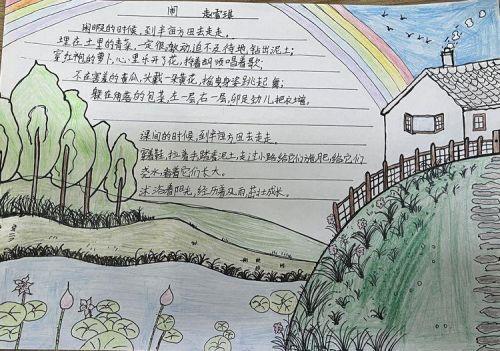 闲 赵雪琪
闲暇的时候,到半亩方田去走走。
埋在土里的青菜,一定很激动,迫不及待地,钻出泥土;
穿红袍的萝卜,心里乐开了花,扮着胡须唱着歌;
不在害羞的黄瓜,头戴一朵黄花,摇曳身姿跳起舞;
躲在角落的包菜,左一层,右一层,卯足劲儿把衣增。
深闲的时候,到半亩方田去走走。
穿着鞋,拉着手,踏着泥土,走过小路给它们施肥,给它们
浇水,看着它们长大。
沐浴着阳光,经历着风雨,茁壮成长。